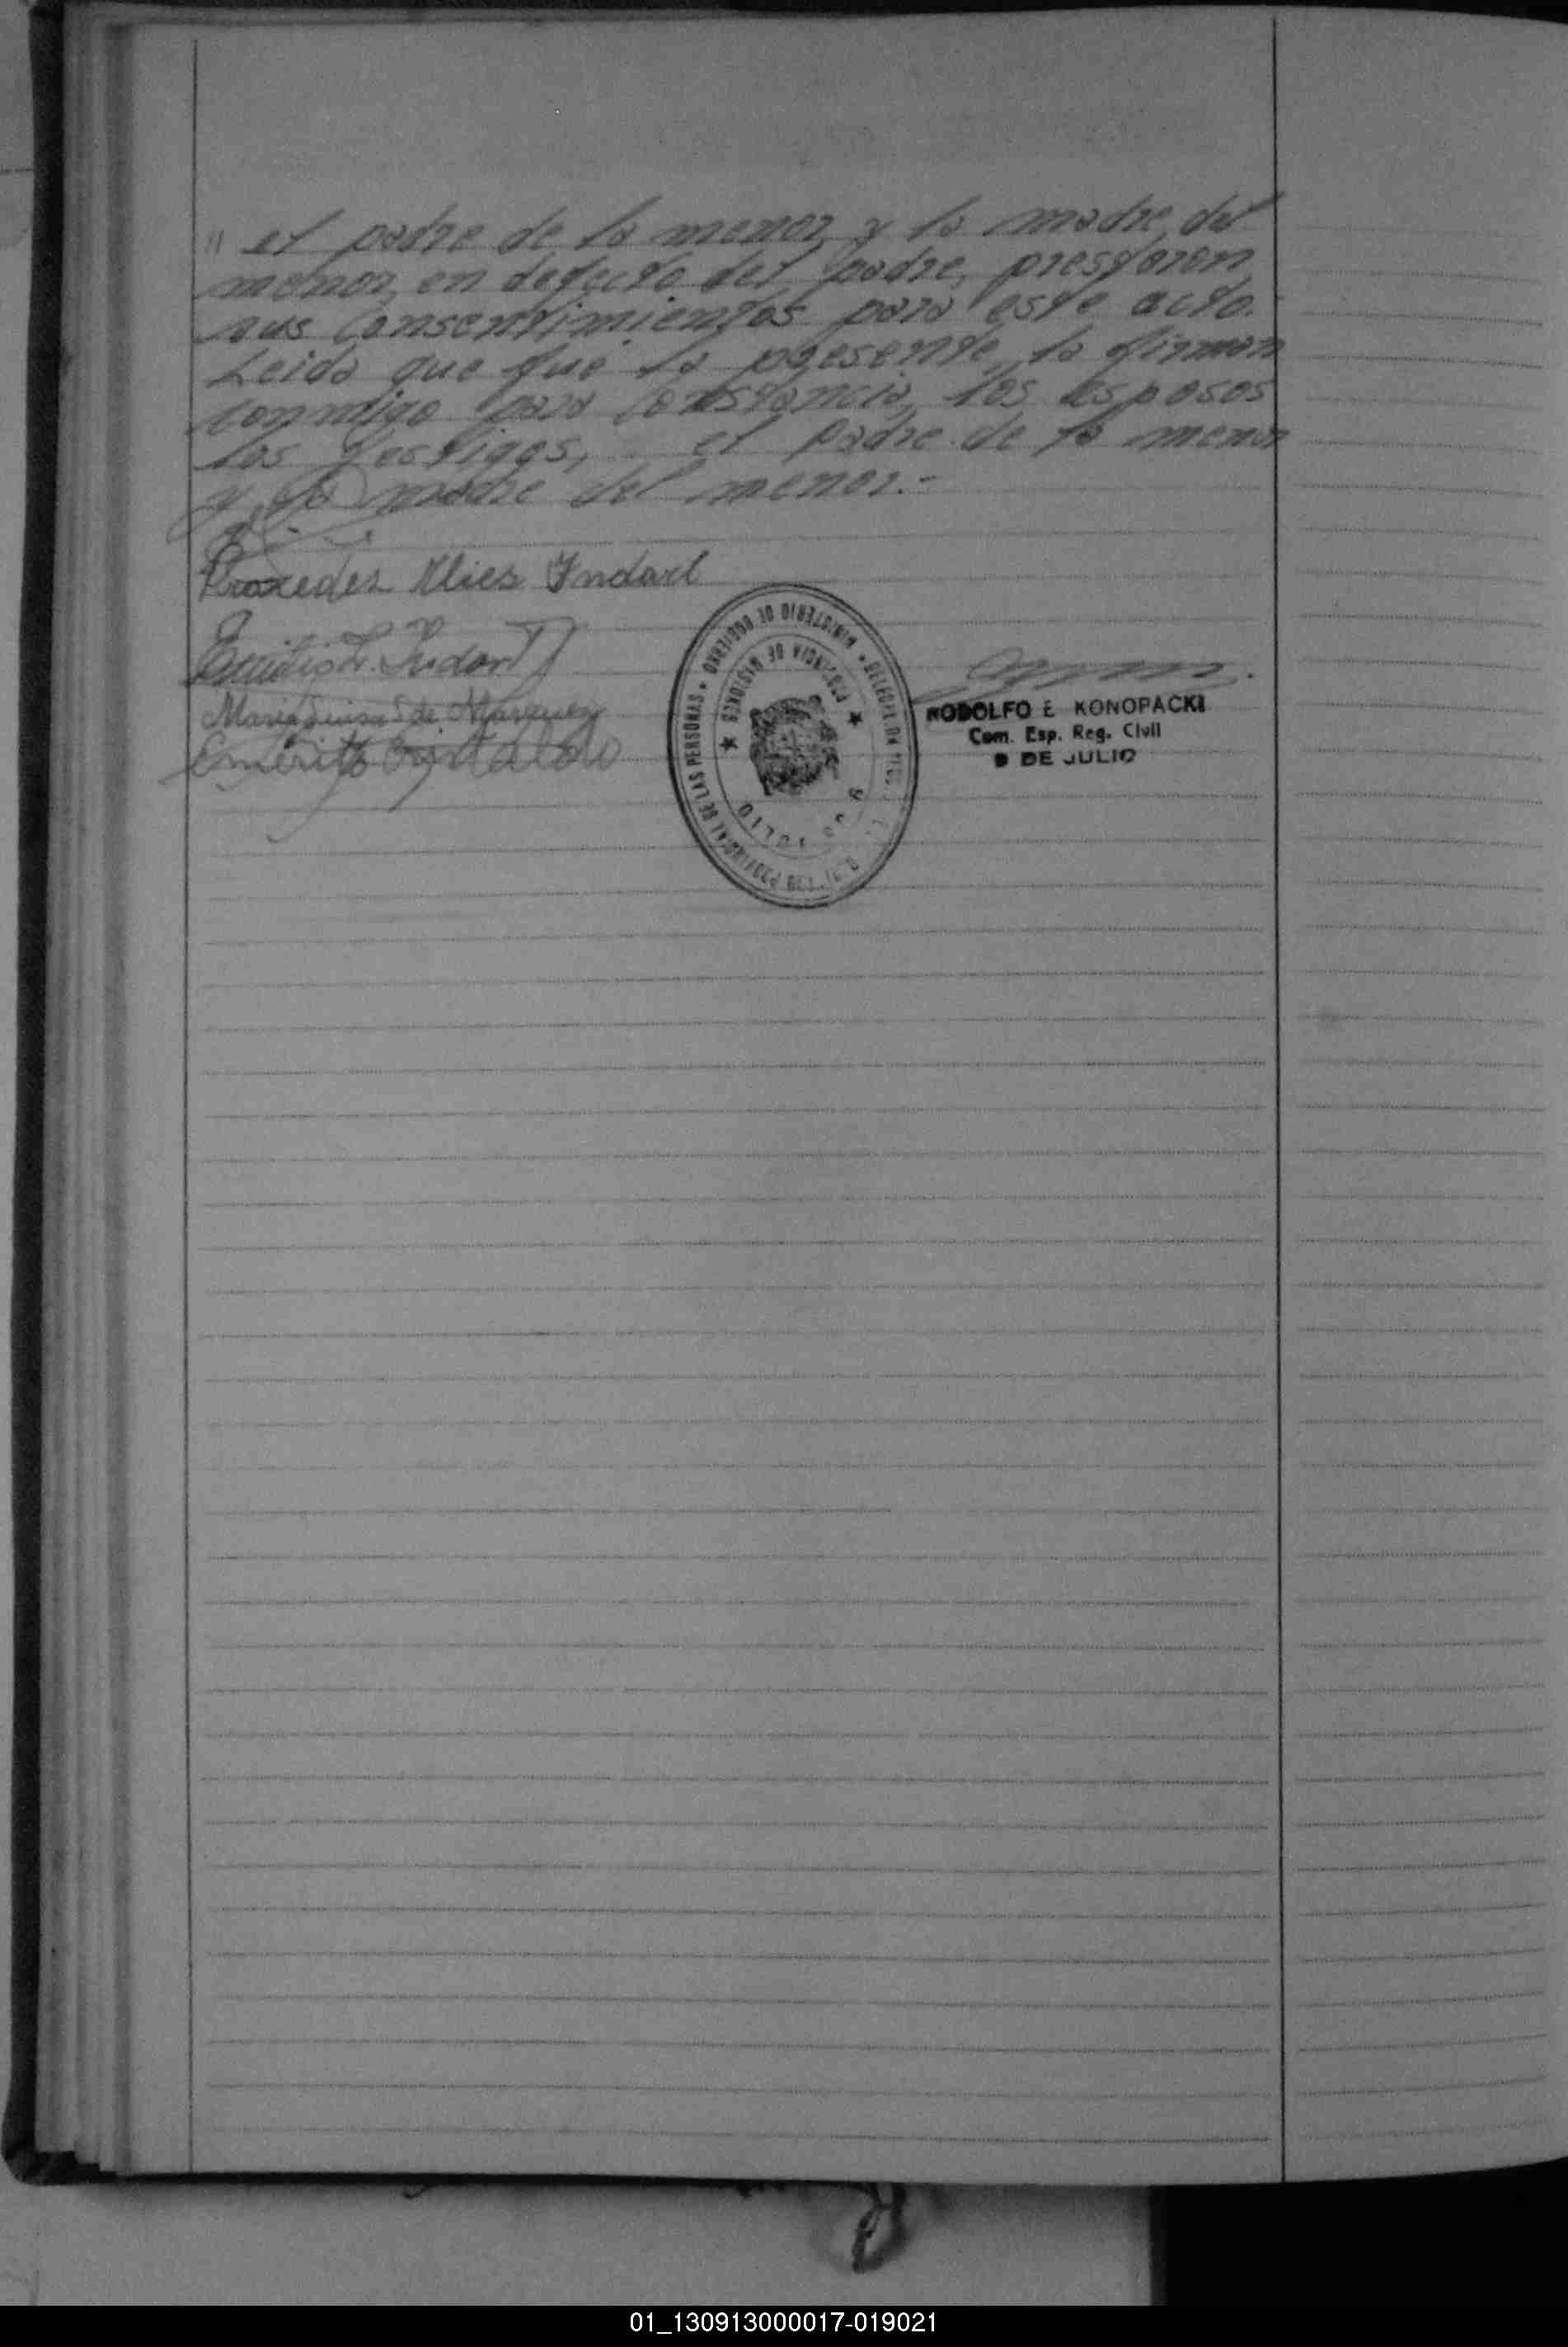 " el padre de la menor y la madre del
menor, en defecto del padre, prestaron
sus consentimientos para este acto.
Leida que fue la presente, la firman
conmigo para constancia, los esposos
los testigos, el padre de la menor
y la madre del menor.-
Praxedes Indart
Emilio Indart
Maria Luisa S de Marquez
Emerito
MINISTERIO DE GOBIERNO
PROVINCIAL DE LAS PERSONAS
PROVINCIA DE MISIONES
9 DE JULIO
RODOLFO E KONOPACKI
Com. Esp. Reg. Civil
9 DE JULIO
01_130913000017-019021